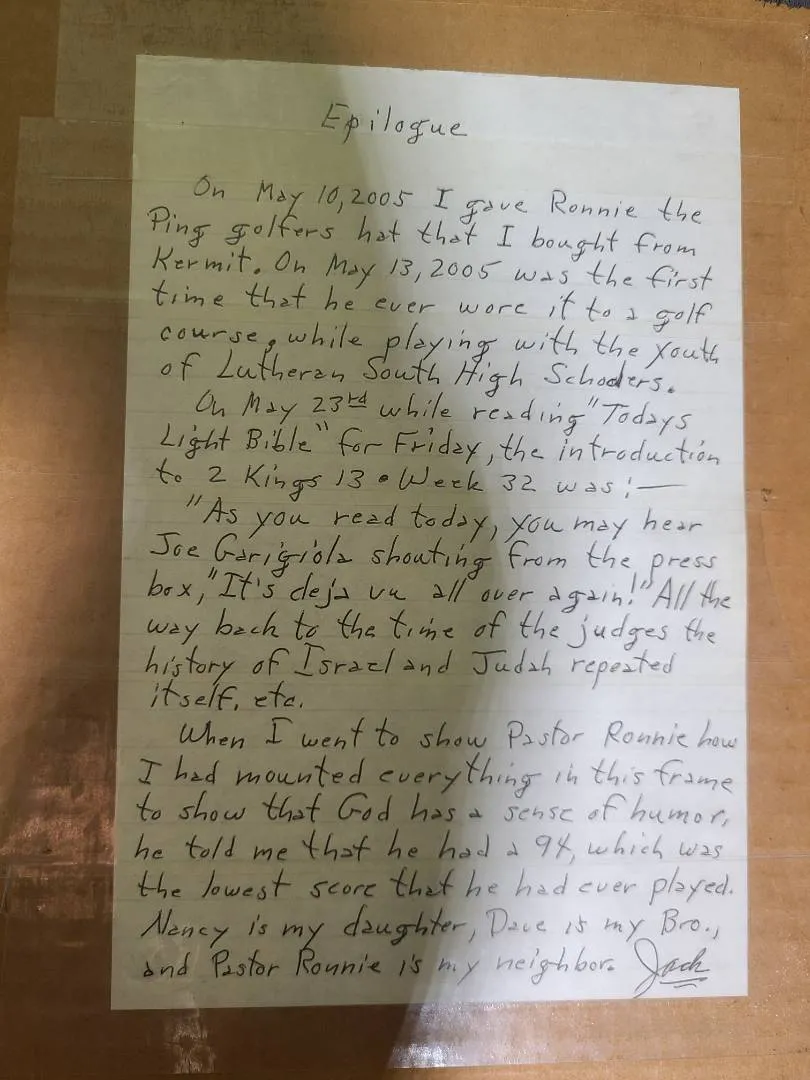 Epilogue
On May 10, 2005 I gave Ronnie the
Ping golfers hat that I bought from
Kermit. On May 13, 2005 was the first
time that he ever wore it to a golf
course, while playing with the youth
of Lutheran South High Schoolers.
On May 23rd while reading "Todays
Light Bible" for Friday, the introduction
to 2 Kings 13 • Week 32 was;—
"As you read today, you may hear
Joe Garigiola shouting from the press
box, "It's deja vu all over again!" All the
way back to the time of the judges the
history of Israel and Judah repeated
itself, etc.
When I went to show Pastor Ronnie how
I had mounted everything in this frame
to show that God has a sense of humor,
he told me that he had a 94, which was
the lowest score that he had ever played.
Nancy is my daughter, Dave is my Bro.,
and Pastor Ronnie is my neighbor. Jack